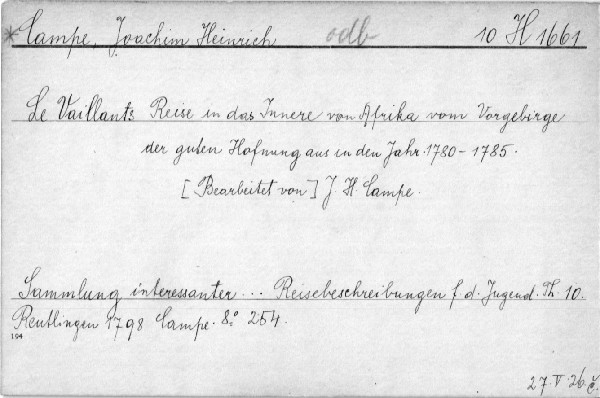 * Campe, Joachim Heinrich odb 10 H 1661
Le Vaillants Reise in das Innere von Afrika vom Vorgebirge
der guten Hofnung aus in den Jahr. 1780-1785.
[Bearbeitet von] J. H. Campe.
Sammlung interessanter... Reisebeschreibungen f. d. Jugend. Th. 10.
Reutlingen 1798 Campe. 8° 254.
194
27. V. 26. Č.